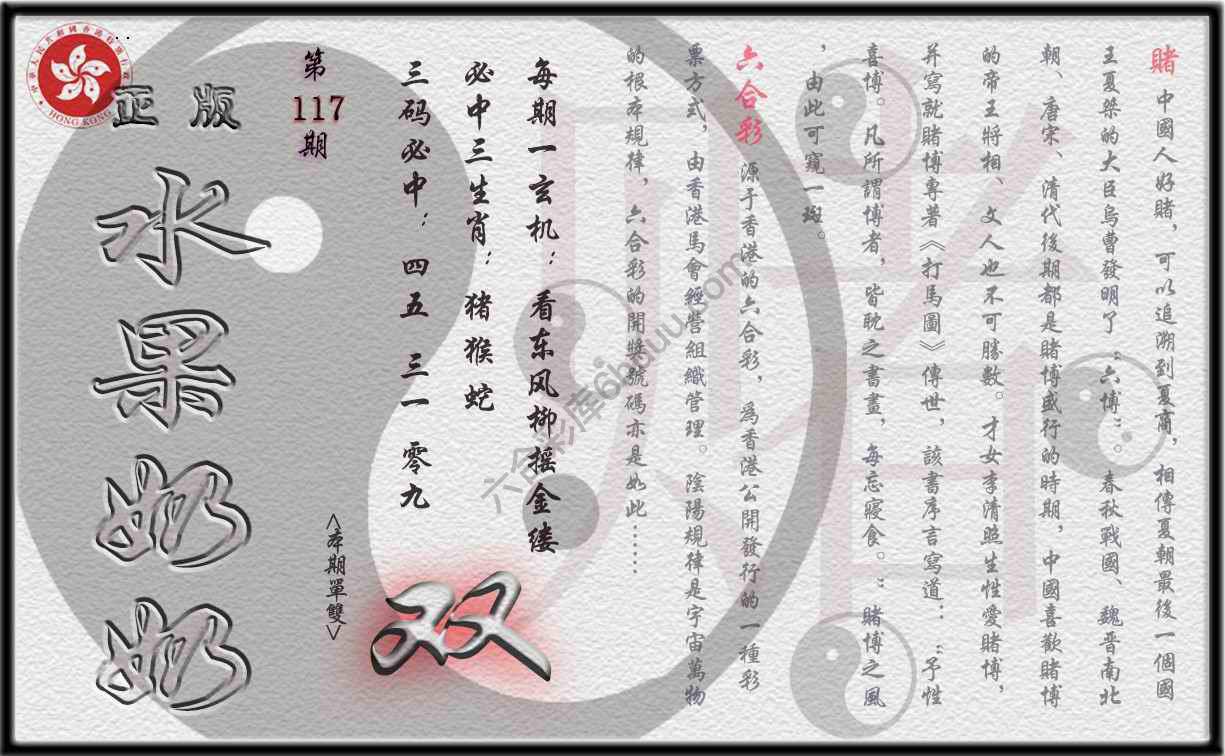 賭 中國人好賭，可以追溯到夏商，相傳夏朝最後一個國
王夏桀的大臣烏曹發明了“六博”。春秋戰國、魏晋南北
朝、唐宋、清代後期都是賭博盛行的時期，中國喜歡賭博
的帝王將相、文人也不可勝數。才女李清照生性愛賭博，
并寫就賭博專著《打馬圖》傳世，該書序言寫道：“予性
喜博。凡所謂博者，皆耽之書畫，每忘寢食。”賭博之風
，由此可窺一斑。
六合彩 源于香港的六合彩，為香港公開發行的一種彩
票方式，由香港馬會經營組織管理。陰陽規律是宇宙萬物
的根本規律，六合彩的開獎號碼亦是如此……
每期一玄机：看东风柳摇金缕
必中三生肖：猪猴蛇
三码必中：四五 三一 零九
第
117
期
<本期單雙>
双
正版
水果奶奶
中華人民共和國香港特別行政區
HONG KONG
六合彩库6hduu.com
賭